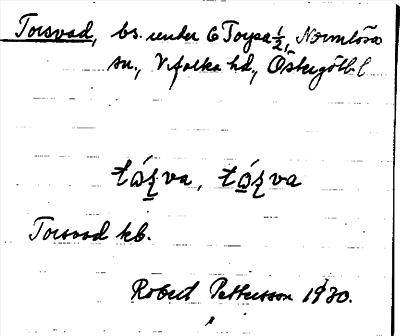 Torsvad, bs. under 6 Torpa 1/2, Normlösa
sn., Vifolka hd., Östergötl. l.
tǿʂva, tǿʂva
Torsvad kb.
Robert Pettersson 1930.